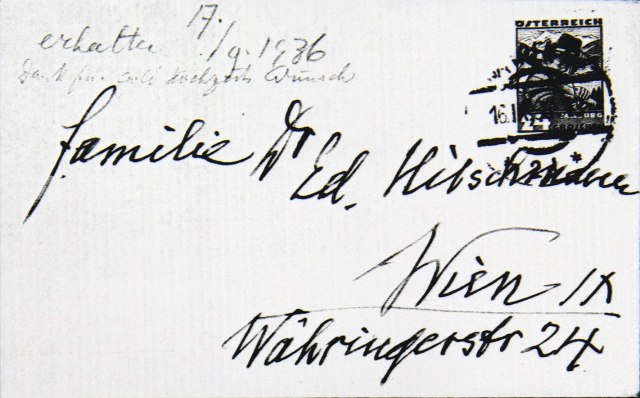 17.
erhalten /9. 1936
Dank für Hochzeits Wunsch
ÖSTERREICH
WIEN
16.I
Familie Dr
Ed. Hitschmann
Wien IX
Währingerstr 24